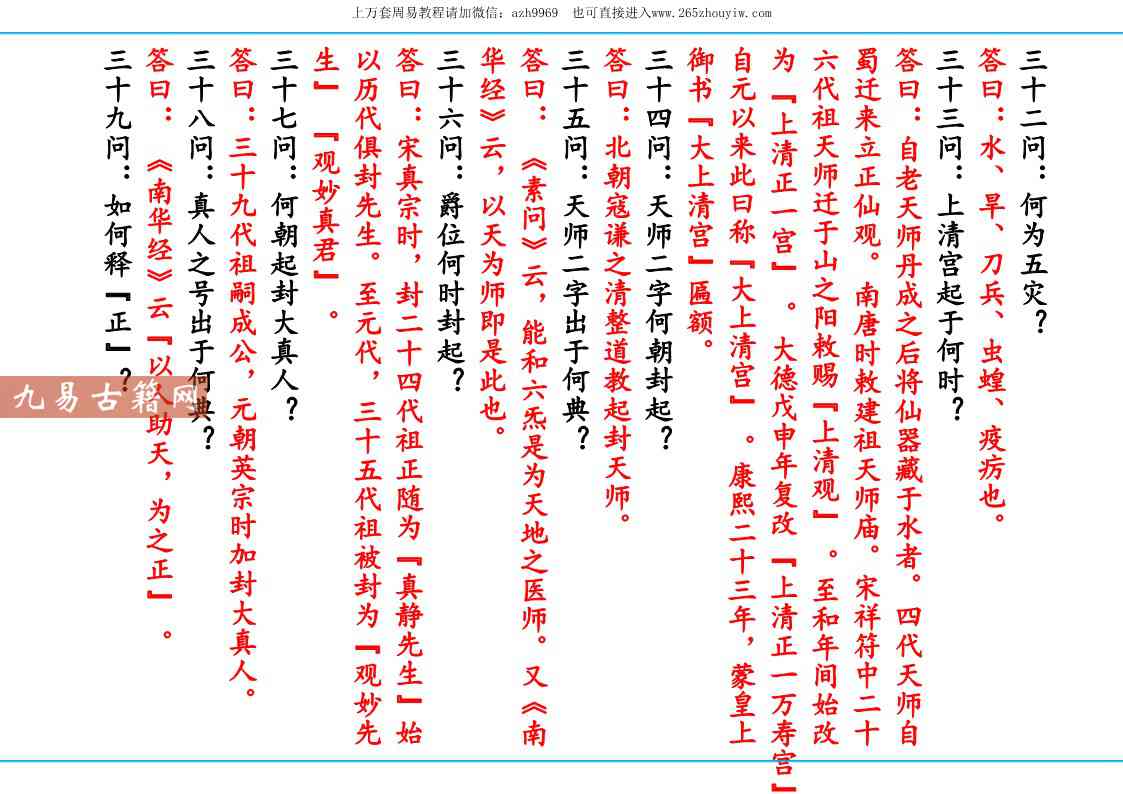 上万套周易教程请加微信：azh9969　也可直接进入www.265zhouyiw.com
三十二问：何为五灾？
答曰：水、旱、刀兵、虫蝗、疫疠也。
三十三问：上清宫起于何时？
答曰：自老天师丹成之后将仙器藏于水者。四代天师自
蜀迁来立正仙观。南唐时敕建祖天师庙。宋祥符中二十
六代祖天师迁于山之阳敕赐『上清观』。至和年间始改
为『上清正一宫』。大德戊申年复改『上清正一万寿宫』
自元以来此曰称『大上清宫』。康熙二十三年，蒙皇上
御书『大上清宫』匾额。
三十四问：天师二字何朝封起？
答曰：北朝寇谦之清整道教起封天师。
三十五问：天师二字出于何典？
答曰：《素问》云，能和六炁是为天地之医师。又《南
华经》云，以天为师即是此也。
三十六问：爵位何时封起？
答曰：宋真宗时，封二十四代祖正随为『真静先生』始
以历代俱封先生。至元代，三十五代祖被封为『观妙先
生』『观妙真君』。
三十七问：何朝起封大真人？
答曰：三十九代祖嗣成公，元朝英宗时加封大真人。
三十八问：真人之号出于何典？
答曰：《南华经》云『以人助天，为之正』。
三十九问：如何释『正』？
九易古籍网